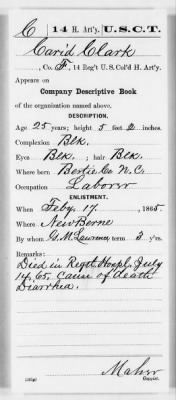 C | 14 H. Art'y. | U.S.C.T.
Carid Clark
, Co. F, 14 Reg't U.S. Col'd H. Art'y.
Appears on
Company Descriptive Book
of the organization named above.
DESCRIPTION.
Age 25 years; height 5 feet 2 inches.
Complexion Blk.
Eyes Blk. ; hair Blk.
Where born Bertie Co N.C.
Occupation Laborer
ENLISTMENT.
When Feby. 17, 1865.
Where New Berne
By whom G. M. Lawrence, term 3 y'rs.
Remarks:
Died in Regtl. Hospl. July
14, 65. Cause of death
Diarrhea.
Maher
Copyist.